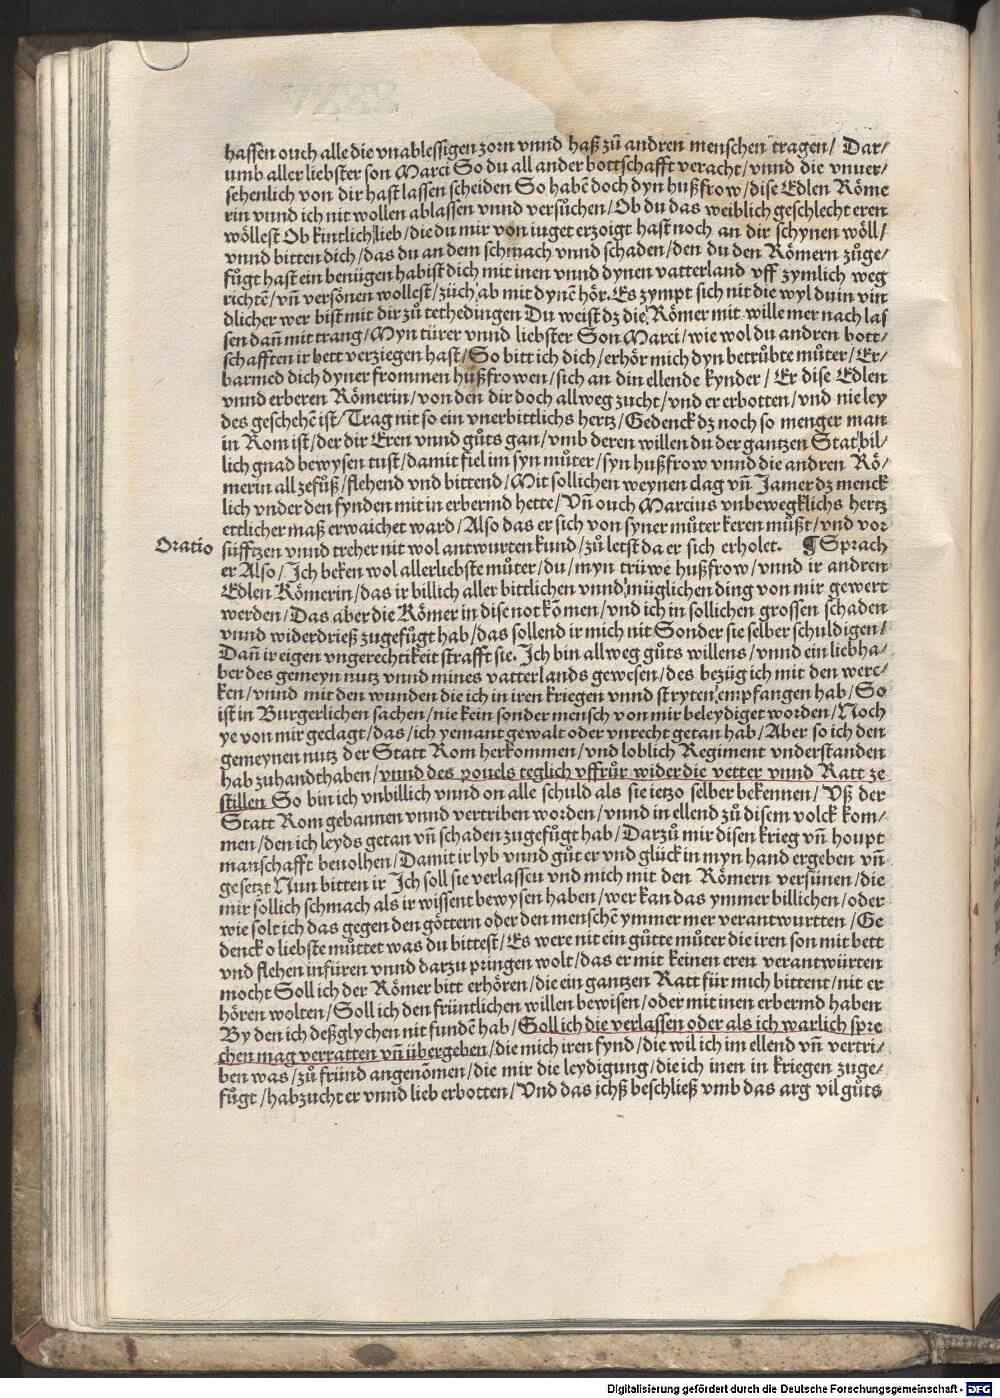 hassen ouch alle die vnablessigen zorn vnnd haß zů andren menschen tragen/ Dar/
umb aller liebster son Marci So du all ander bottschafft veracht/vnnd die vnuer/
sehenlich von dir hast lassen scheiden So habẽ doch dyn hußfrow/dise Edlen Röme
rin vnnd ich nit wollen ablassen vnnd versůchen/Ob du das weiblich geschlecht eren
wöllest Ob kintlich lieb/die du mir von iuget erzoigt hast noch an dir schynen wöll/
vnnd bitten dich/das du an dem schmach vnnd schaden/den du den Römern zůge/
fůgt hast ein benügen habist dich mit inen vnnd dynen vatterland vff zymlich weg
richtẽ/vñ versönen wollest/züch ab mit dynẽ hör. Es zympt sich nit die wyl du in vin
dlicher wer bist mit dir zů tethedingen Du weist dz die Römer mit wille mer nach las
sen dañ mit trang/Myn türer vnnd liebster Son Marci/wie wol du andren bott/
schafften ir bett verziegen hast/So bitt ich dich/erhör mich dyn betrůbte můter/Er/
barmed dich dyner frommen hußfrowen/sich an din ellende kynder/ Er dise Edlen
vnnd erberen Römerin/von den dir doch allweg zucht/vnd er erbotten/vnd nie ley
des geschehẽ ist/Trag nit so ein vnerbittlichs hertz/Gedenck dz noch so menger man
in Rom ist/der dir Eren vnnd gůts gan/vmb deren willen du der gantzen Stat bil/
lich gnad bewysen tust/damit fiel im syn můter/syn hußfrow vnnd die andren Rö/
merin all zefůß/flehend vnd bittend/Mit sollichen weynen clag vñ Jamer dz menck
lich vnder den fynden mit in erbermd hette/Vñ ouch Marcius vnbewegklichs hertz
ettlicher maß erwaichet ward/Also das er sich von syner můter keren můßt/vnd vor
Oratio süfftzen vnnd treher nit wol antwurten kund/zů letst da er sich erholet. ¶ Sprach
er Also/Ich beken wol allerliebste můter/du/myn trüwe hußfrow/vnnd ir andren
Edlen Römerin/das ir billich aller bittlichen vnnd müglichen ding von mir gewert
werden/Das aber die Römer in dise not kõmen/vnd ich in sollichen grossen schaden
vnnd widerdrieß zugefůgt hab/das sollend ir mich nit Sonder sie selber schuldigen/
Dañ ir eigen vngerechtikeit strafft sie. Ich bin allweg gůts willens/vnnd ein liebha/
ber des gemeyn nutz vnnd mines vatterlands gewesen/des bezüg ich mit den werc/
ken/vnnd mit den wunden die ich in iren kriegen vnnd stryten empfangen hab/So
ist in Burgerlichen sachen/nie kein sonder mensch von mir beleydiget worden/Noch
ye von mir geclagt/das/ich yemant gewalt oder vnrecht getan hab/Aber so ich den
gemeynen nutz der Statt Rom herkommen/vnd loblich Regiment vnderstanden
hab zuhandthaben/vnnd des pouels teglich vffrůr wider die vetter vnnd Ratt ze
stillen So bin ich vnbillich vnnd on alle schuld als sie ietzo selber bekennen/Vß der
Statt Rom gebannen vnnd vertriben worden/vnnd in ellend zů disem volck kom/
men/den ich leyds getan vñ schaden zugefůgt hab/Darzů mir disen krieg vñ houpt
manschafft beuolhen/Damit ir lyb vnnd gůt er vnd glück in myn hand ergeben vñ
gesetzt Nun bitten ir Ich soll sie verlassen vnd mich mit den Römern versünen/die
mir sollich schmach als ir wissent bewysen haben/wer kan das ymmer billichen/oder
wie solt ich das gegen den göttern oder den menschẽ ymmer mer verantwurtten/Ge
denck o liebste můttet was du bittest/Es were nit ein gůtte můter die iren son mit bett
vnd flehen infüren vnnd darzu pringen wolt/das er mit keinen eren verantwürten
mocht Soll ich der Römer bitt erhören/die ein gantzen Ratt für mich bittent/nit er
hören wolten/Soll ich den früntlichen willen bewisen/oder mit inen erbermd haben
By den ich deßglychen nit fundẽ hab/Soll ich die verlassen oder als ich warlich spre
chen mag verratten vñ übergeben/die mich iren fynd/die wil ich im ellend vñ vertri/
ben was/zů fründ angenõmen/die mir die leydigung/die ich inen in kriegen zuge/
fůgt/hab zucht er vnnd lieb erbotten/Vnd das ichß beschließ vmb das arg vil gůts
Digitalisierung gefördert durch die Deutsche Forschungsgemeinschaft - DFG